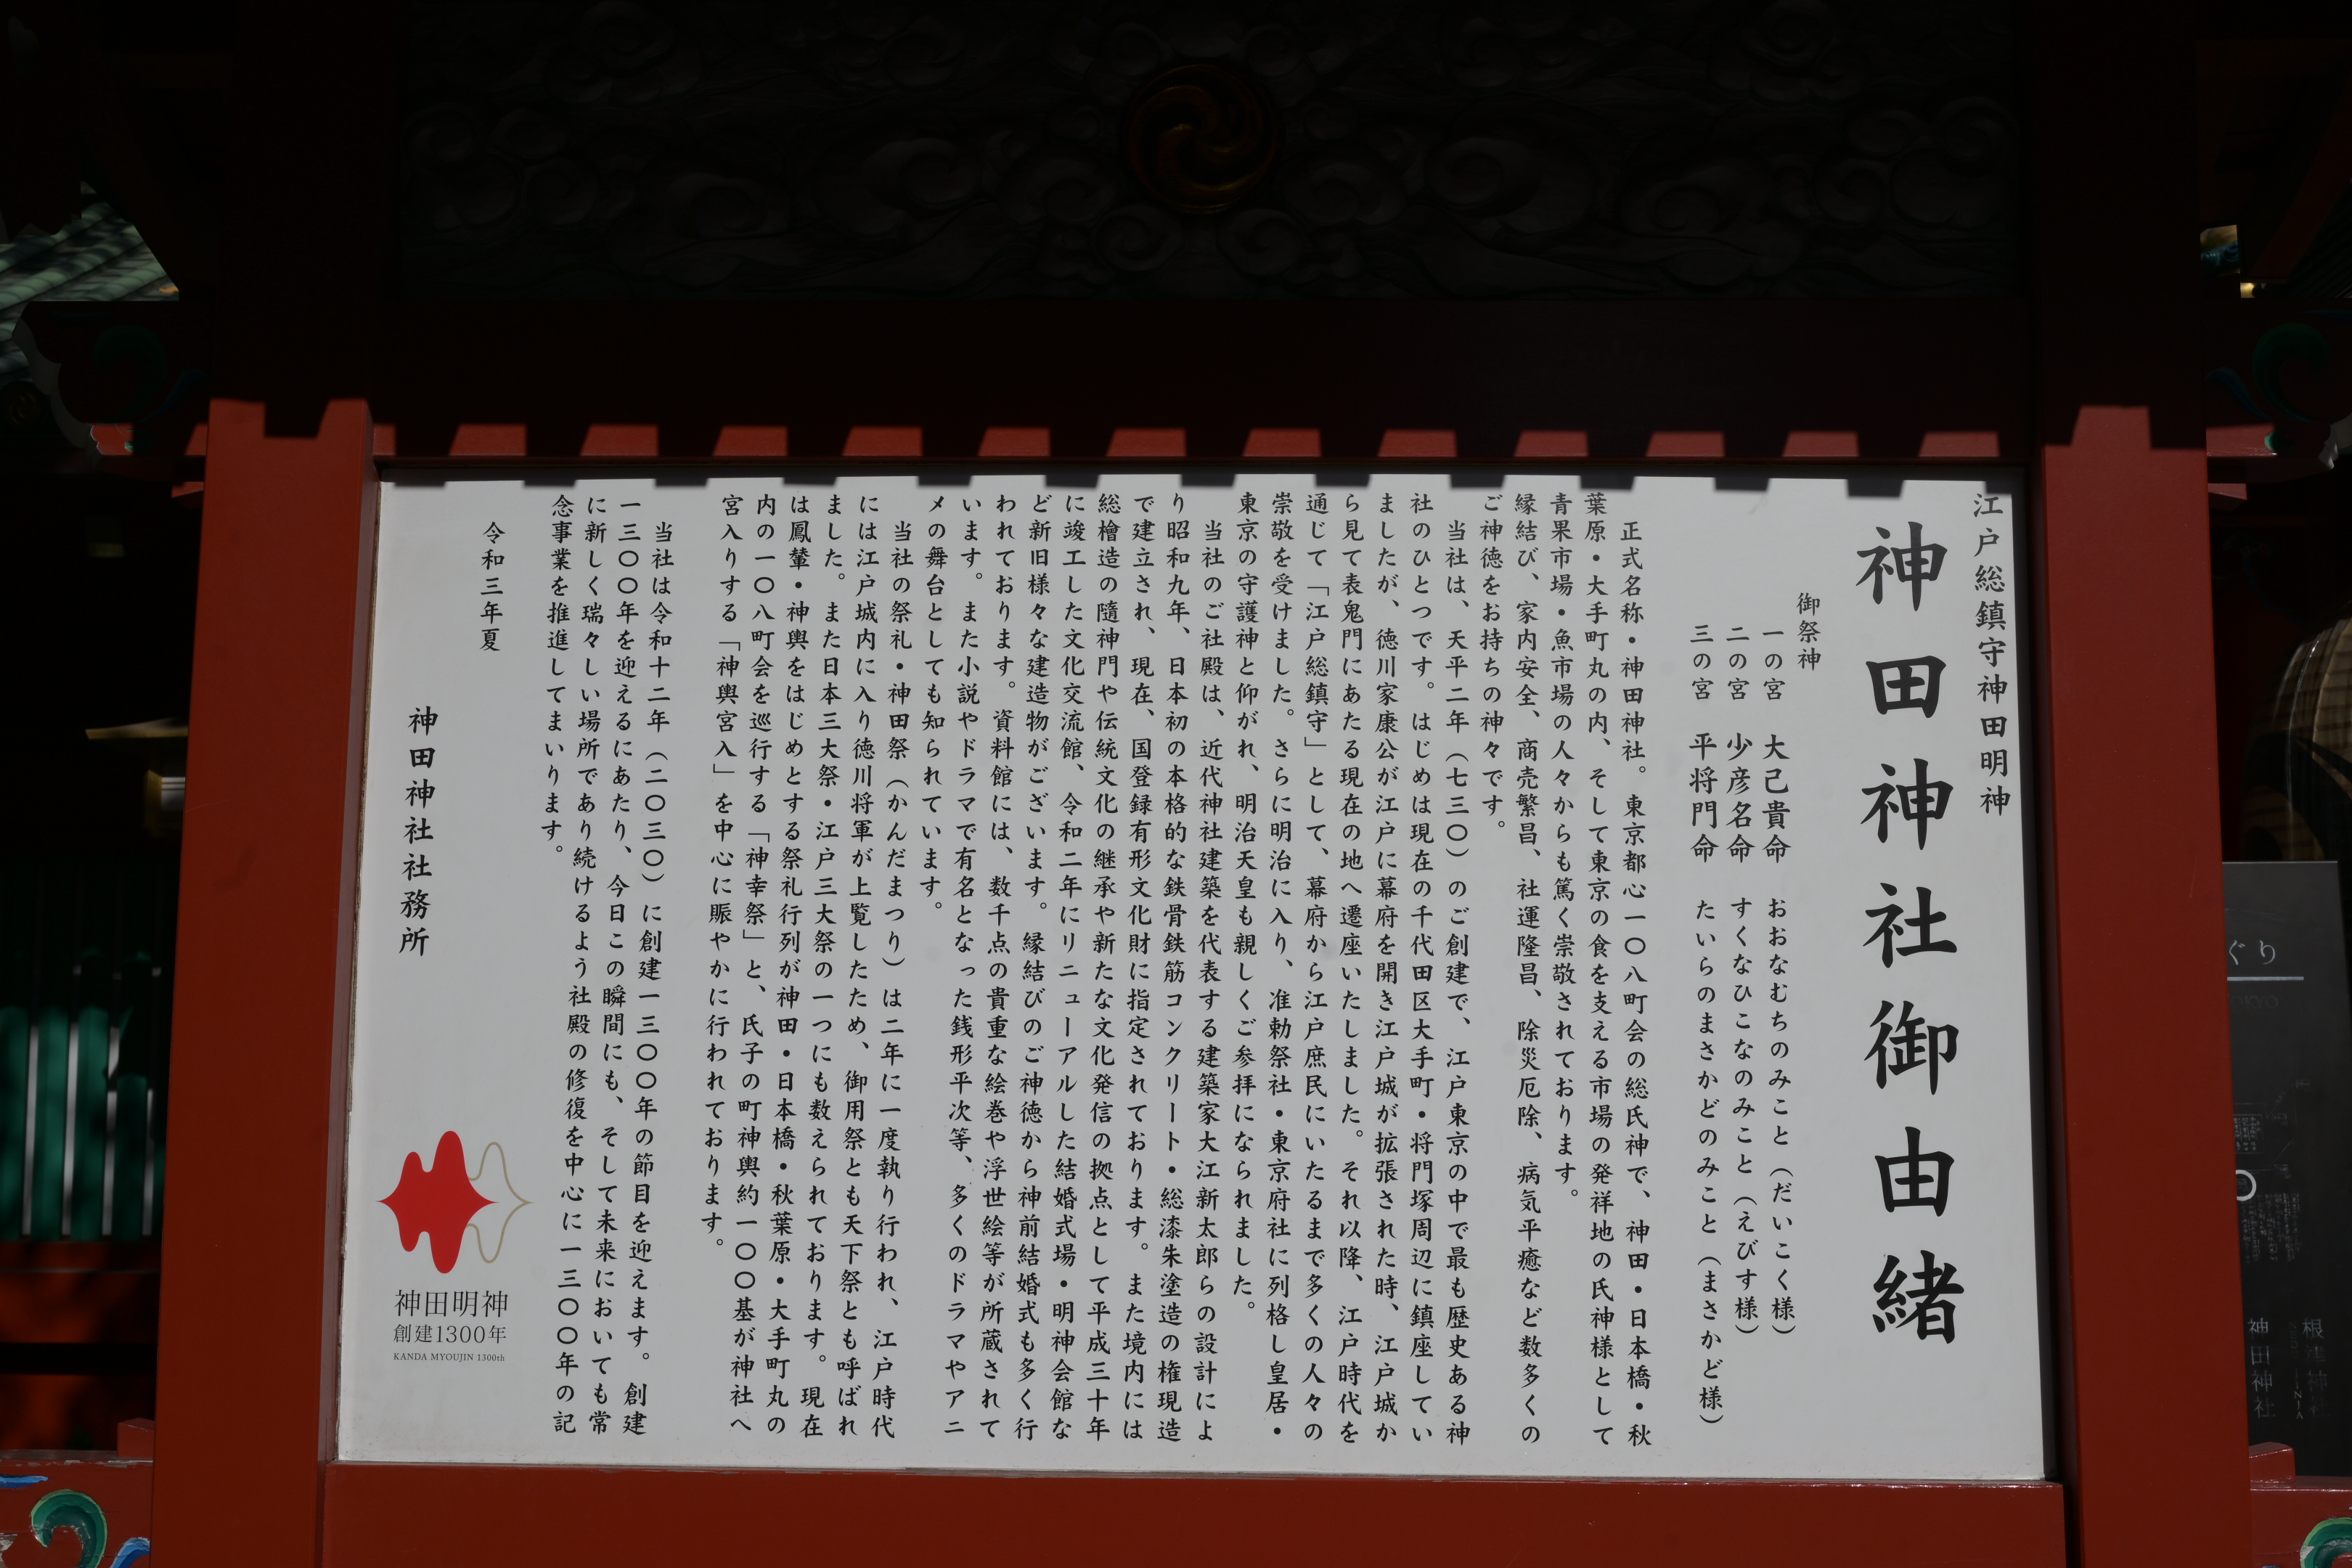 江戸総鎮守神田明神
神田神社御由緒
御祭神
一の宮 大己貴命 おおなむちのみこと（だいこく様）
二の宮 少彦名命 すくなひこなのみこと（えびす様）
三の宮 平将門命 たいらのまさかどのみこと（まさかど様）
正式名称・神田神社。東京都心一〇八町会の総氏神で、神田・日本橋・秋
葉原・大手町丸の内、そして東京の食を支える市場の発祥地の氏神様として
青果市場・魚市場の人々からも篤く崇敬されております。
縁結び、家内安全、商売繁昌、社運隆昌、除災厄除、病気平癒など数多くの
ご神徳をお持ちの神々です。
当社は、天平二年（七三〇）のご創建で、江戸東京の中で最も歴史ある神
社のひとつです。はじめは現在の千代田区大手町・将門塚周辺に鎮座してい
ましたが、徳川家康公が江戸に幕府を開き江戸城が拡張された時、江戸城か
ら見て表鬼門にあたる現在の地へ遷座いたしました。それ以降、江戸時代を
通じて「江戸総鎮守」として、幕府から江戸庶民にいたるまで多くの人々の
崇敬を受けました。さらに明治に入り、准勅祭社・東京府社に列格し皇居・
東京の守護神と仰がれ、明治天皇も親しくご参拝になられました。
当社のご社殿は、近代神社建築を代表する建築家大江新太郎らの設計によ
り昭和九年、日本初の本格的な鉄骨鉄筋コンクリート・総漆朱塗造の権現造
で建立され、現在、国登録有形文化財に指定されております。また境内には
総檜造の隨神門や伝統文化の継承や新たな文化発信の拠点として平成三十年
に竣工した文化交流館、令和二年にリニューアルした結婚式場・明神会館な
ど新旧様々な建造物がございます。縁結びのご神徳から神前結婚式も多く行
われております。資料館には、数千点の貴重な絵巻や浮世絵等が所蔵されて
います。また小説やドラマで有名となった銭形平次等、多くのドラマやアニ
メの舞台としても知られています。
当社の祭礼・神田祭（かんだまつり）は二年に一度執り行われ、江戸時代
には江戸城内に入り徳川将軍が上覧したため、御用祭とも天下祭とも呼ばれ
ました。また日本三大祭・江戸三大祭の一つにも数えられております。現在
は鳳輦・神輿をはじめとする祭礼行列が神田・日本橋・秋葉原・大手町丸の
内の一〇八町会を巡行する「神幸祭」と、氏子の町神輿約一〇〇基が神社へ
宮入りする「神輿宮入」を中心に賑やかに行われております。
当社は令和十二年（二〇三〇）に創建一三〇〇年の節目を迎えます。創建
一三〇〇年を迎えるにあたり、今日この瞬間にも、そして未来においても常
に新しく瑞々しい場所であり続けるよう社殿の修復を中心に一三〇〇年の記
念事業を推進してまいります。
令和三年夏
神田神社社務所
神田明神
創建1300年
KANDA MYOUJIN 1300th
ぐり
根津神社
神田神社